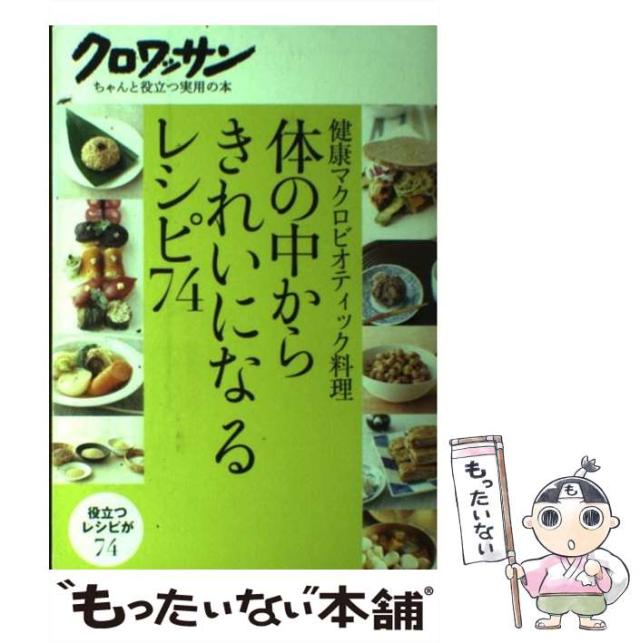 クロワッサン
ちゃんと役立つ実用の本
健康マクロビオティック料理
体の中から
きれいになる
レシピ74
役立つ
レシピが
74
"もったいない本舗"®
もったいない
も